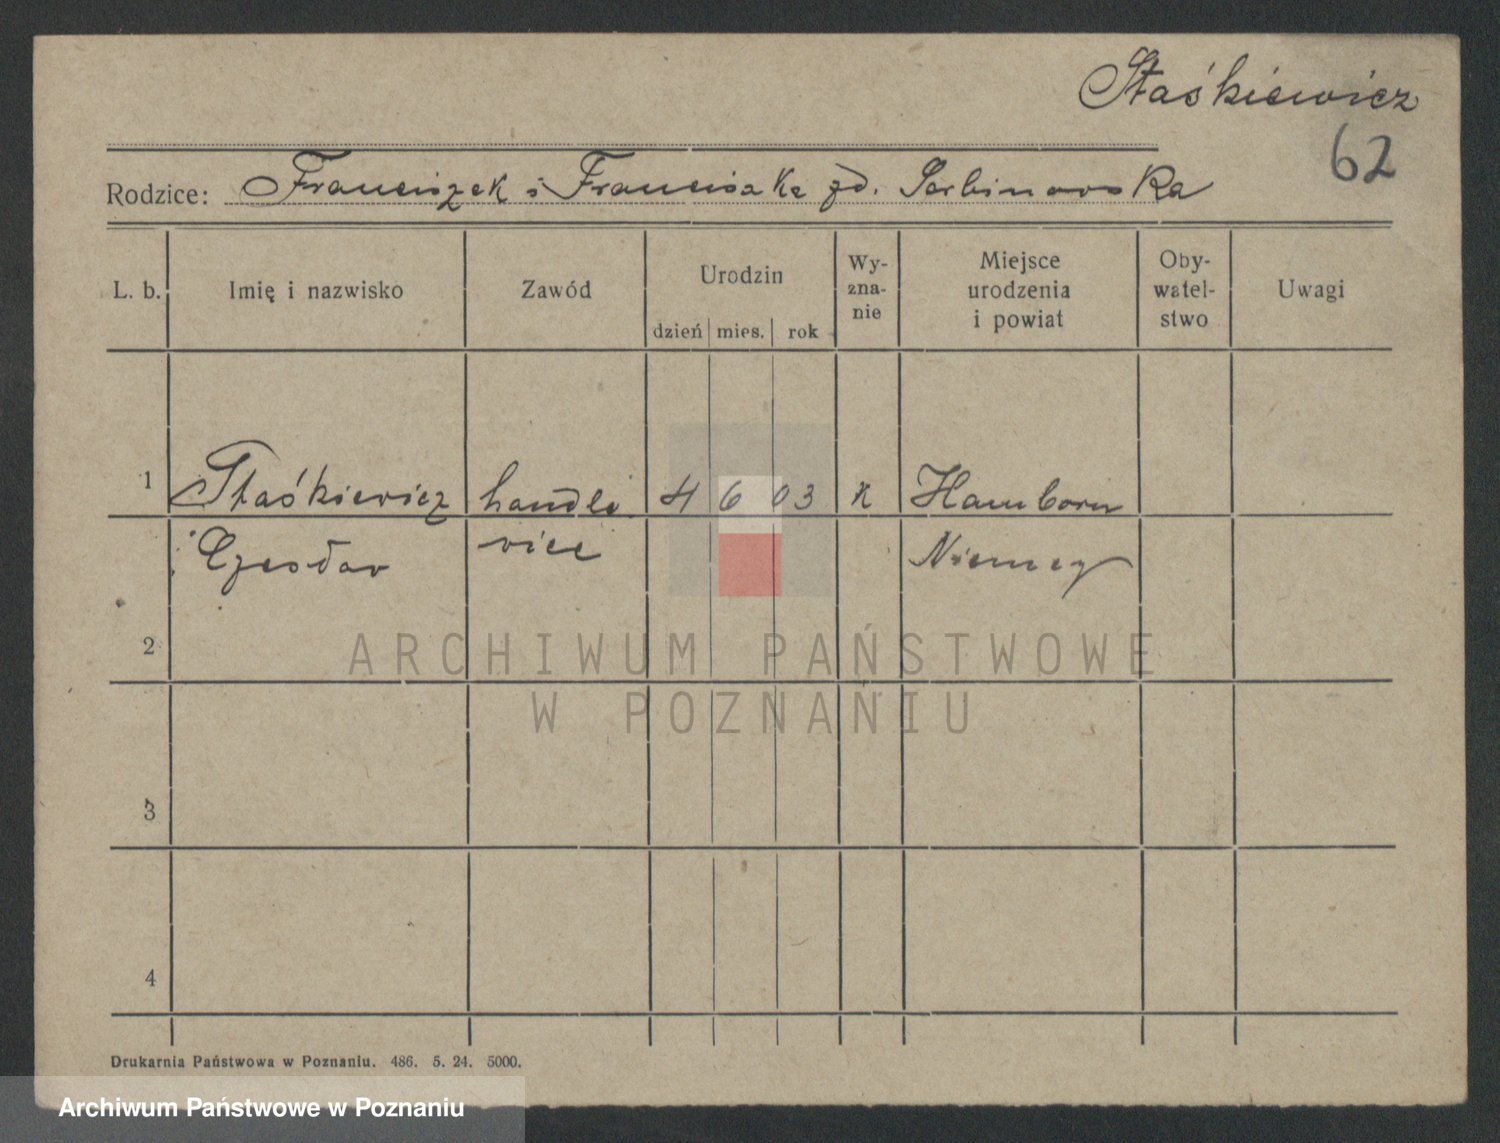 Staśkiewicz
62
Rodzice: Franciszek i Franciszka zd. Serbinowska
L. b. Imię i nazwisko Zawód Urodzin dzień mies. rok Wy-zna-nie Miejsce urodzenia i powiat Oby-watel-stwo Uwagi
1 Staśkiewicz handlo 4 6 03 K Hamborn
Czesław Niemcy
2
3
4
Drukarnia Państwowa w Poznaniu. 486. 5. 24. 5000.
ARCHIWUM PAŃSTWOWE
W POZNANIU
Archiwum Państwowe w Poznaniu